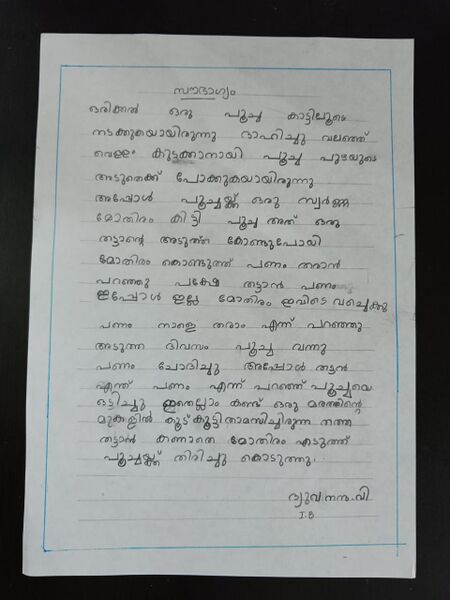 സൗഭാഗ്യം
ഒരിക്കൽ ഒരു പൂച്ച കാട്ടിലൂടെ
നടക്കുകയായിരുന്നു ദാഹിച്ചു വലഞ്ഞ്
വെള്ളം കുടക്കാനായി പൂച്ച പുഴയുടെ
അടുതെക്ക് പോക്കുകയായിരുന്നു
അപ്പോൾ പൂച്ചയ്ക്ക് ഒരു സ്വർണ്ണ
മോതിരം കിട്ടി പൂച്ച അത് ഒരു
തട്ടാന്റെ അടുത്ത കോണ്ടുപോയി
മോതിരം കൊണ്ടുത്ത് പണം തരാൻ
പറഞ്ഞു പക്ഷേ തട്ടാൻ പണം
ഇപ്പോൾ ഇല്ല മോതിരം ഇവിടെ വച്ചെക്കൂ
പണം നാളെ തരാം എന്ന് പറഞ്ഞു
അടുത്ത ദിവസം പൂച്ച വന്നു
പണം ചോദിച്ചു അപ്പോൾ തട്ടൻ
എന്ത് പണം എന്ന് പറഞ്ഞ് പൂച്ചയെ
ഒട്ടിച്ചു ഇതെല്ലാം കണ്ട് ഒരു മരത്തിന്റെ
മുകളിൽ കൂട്കൂട്ടിതാമസിച്ചിരുന്ന തത്ത
തട്ടാൻ കണാതെ മോതിരം എടുത്ത്
പൂച്ചയ്ക്ക് തിരിച്ചു കൊടുത്തു.
ദ്യുവനന്ദ.വി
I.B